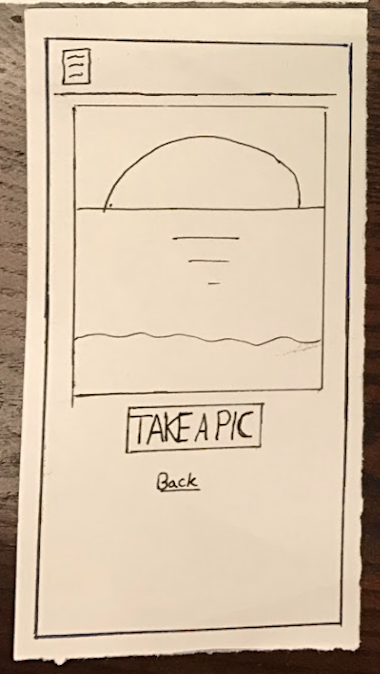 TAKE A PIC
Back